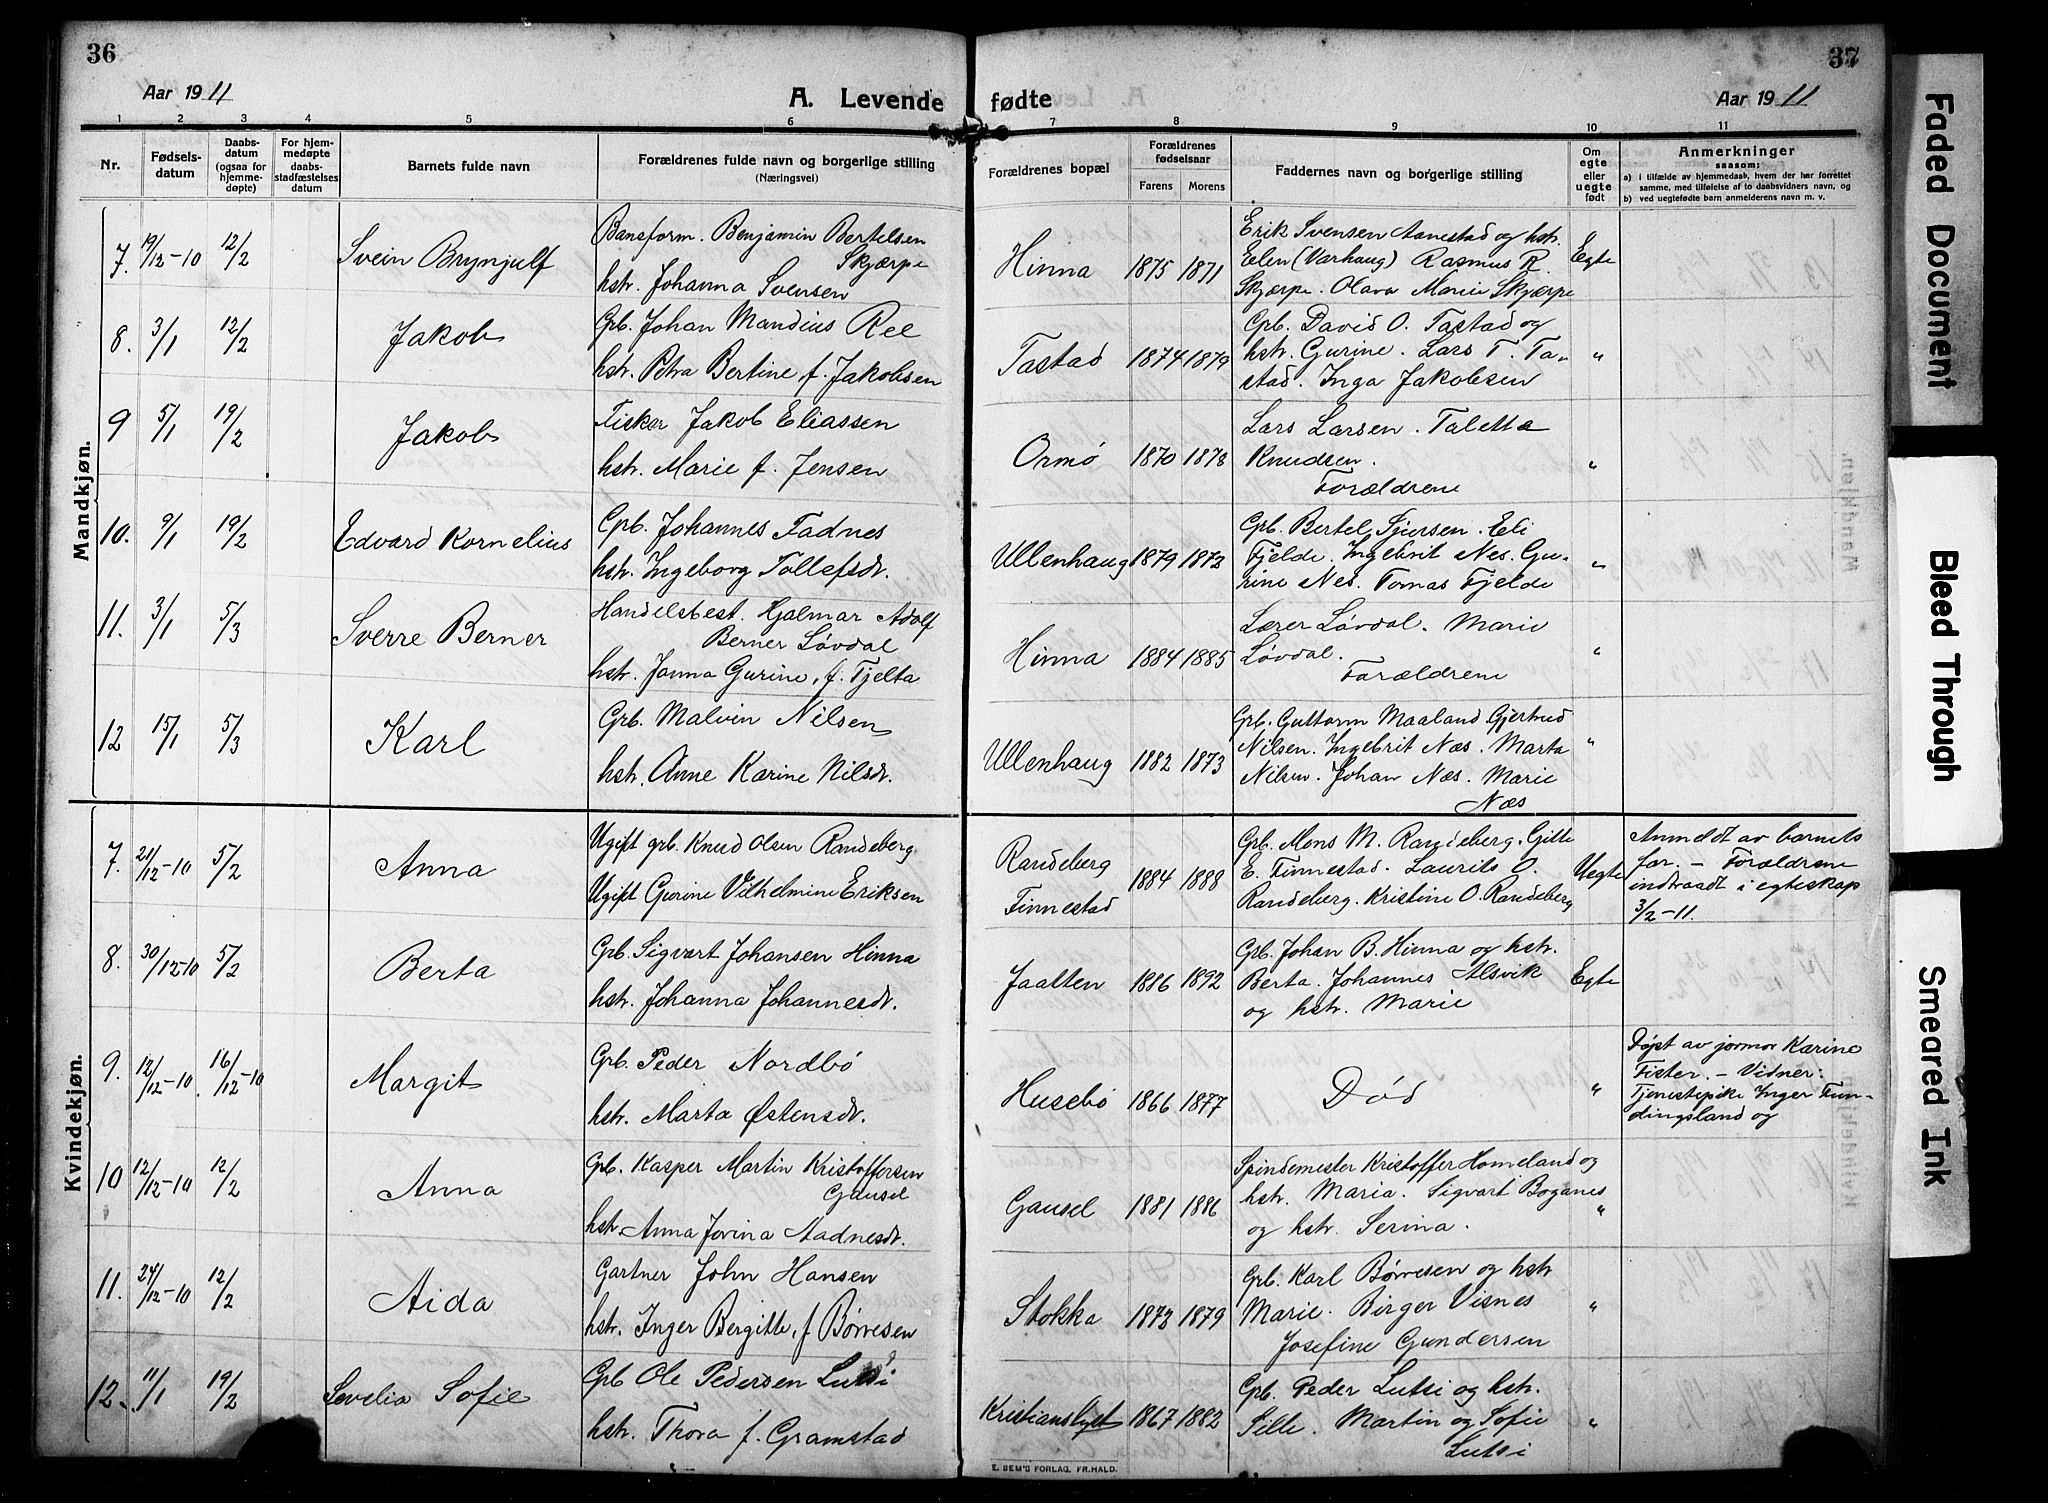 36
37
Aar 1911
A. Levende fødte
Aar 1911
1 2 3 4 5 6 7 8 9 10 11
Nr.
Fødsels-
datum
Daabs-
datum
(ogsaa for
hjemme-
døpte)
For hjem-
medøpte
daabs-
stadfæstelses
datum
Barnets fulde navn
Forældrenes fulde navn og borgerlige stilling
(Næringsvei)
Forældrenes bopæl
Forældrenes
fødselsaar
Farens Morens
Faddernes navn og borgerlige stilling
Om
egte
eller
uegte
født
Anmerkninger
saasom:
a) i tilfælde av hjemmedaab, hvem der har forrettet
samme, med tilføielse af to daabsvidners navn, og
b) ved uegtefødte barn anmelderens navn m. v.
Mandkjøn.
7. 19/12-10 12/2 Svein Brynjulf
Bansform. Benjamin Bertelsen
Skjærpe
hstr. Johanna Svensen
Hinna 1875 1871
Erik Svensen Aanestad og hstr.
Elen (Varhaug) Rasmus R.
Skjærpe. Olava Marie Skjærpe
Egte
8. 3/1 12/2 Jakob
Grb. Johan Mandius Ree
hstr. Petra Bertine f. Jakobsen
Tastad 1874 1879
Grb. David O. Tastad og
hstr. Gurine. Lars T. Ta-
stad. Inga Jakobsen
"
9 5/1 19/2 Jakob
Fisker Jakob Eliassen
hstr. Marie f. Jensen
Ormø 1870 1878
Lars Larsen. Taletta
Knudsen.
Forældrene
"
10. 9/1 19/2 Edvard Kornelius
Grb. Johannes Fadnes
hstr. Ingeborg Tollefsdr.
Ullenhaug 1879 1872
Grb. Bertel Sjursen. Eli
Fjelde. Ingebrit Nes. Gu-
rine Nes. Tomas Fjelde
"
11. 3/1 5/3 Sverre Berner
Handelsbest. Hjalmar Adolf
Berner Løvdal
hstr. Janna Gurine, f. Tjelta
Hinna 1884 1885
Lærer Løvdal. Marie
Løvdal.
Forældrene
"
12 15/1 5/3 Karl
Grb. Malvin Nilsen
hstr. Anne Karine Nilsdr.
Ullenhaug 1882 1873
Grb. Guttorm Maaland Gjertrud
Nilsen. Ingebrit Næs. Marta
Nilsen. Johan Næs. Marie
Næs
"
Kvindekjøn.
7. 21/12-10 5/2 Anna
Ugift grb. Knud Olsen Randeberg
Ugift Gurine Vilhelmine Eriksen
Randeberg
Finnestad
1884 1888
Grb. Mons M. Randeberg. Gitte
E. Finnestad. Laurits O.
Randeberg. Kristine O. Randeberg
Uegte
Anmeldt av barnets
far. – Forældrene
indtraadt i egteskap
3/2-11.
8. 30/12-10 5/2 Berta
Grb. Sigvart Johansen Hinna
hstr. Johanna Johannesdr.
Jaatten 1886 1892
Grb. Johan B. Hinna og hstr.
Berta. Johannes Alsvik
og hstr. Marie
Egte
9. 12/12-10 16/12-10 Margit
Grb. Peder Nordbø
hstr. Marta Østensdr.
Husebø 1866 1877
Død
"
Døpt av jormor Karine
Fister. – Vidner:
Tjenestepike Inger Fun-
dingsland og
10 12/12-10 12/2 Anna
Grb. Kasper Martin Kristoffersen
Gausel
hstr. Anna Jorina Aadnesdr.
Gausel 1881 1886
Spindemester Kristoffer Homeland og
hstr. Maria. Sigvart Boganes
og hstr. Serina.
"
11. 24/12-10 12/2 Aida
Gartner John Hansen
hstr. Inger Bergitte, f Børresen
Stokka 1873 1879
Grb. Karl Børresen og hstr
Marie. Birger Visnes
Josefine Gundersen
"
12. 11/1 19/2 Sevelia Sofie
Grb Ole Pedersen Lutsi
hstr. Thora f. Gramstad
Kristianslyst 1867 1882
Grb. Peder Lutsi og hstr.
Sille. Martin og Sofie
Lutsi
"
E. SEM'S FORLAG, FR.HALD.
Faded Document
Bleed Through
Smeared Ink